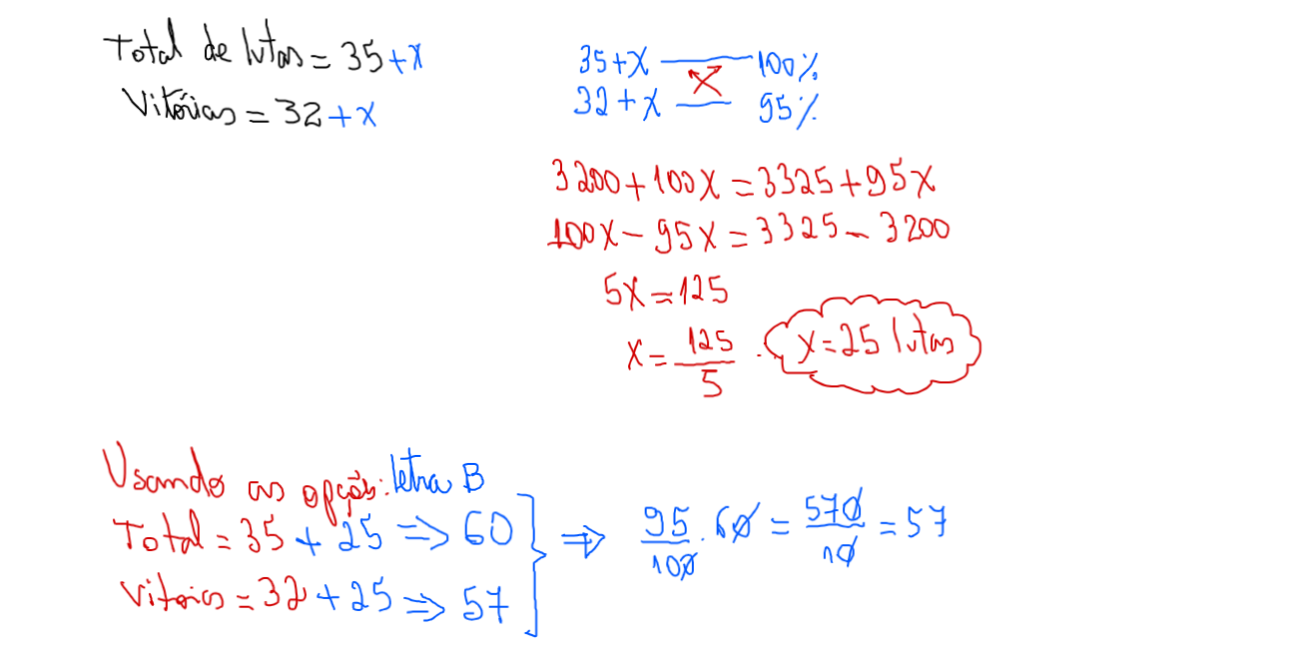 Total de lutas = 35 + x
Vitórias = 32 + x
35 + x 100%
32 + x 95%
3200 + 100x = 3325 + 95x
100x - 95x = 3325 - 3200
5x = 125
x = 125/5 . x = 25 lutas
Usando as opções: letra B
Total = 35 + 25 => 60
Vitórias = 32 + 25 => 57
=> 95/100 . 60 = 570/10 = 57